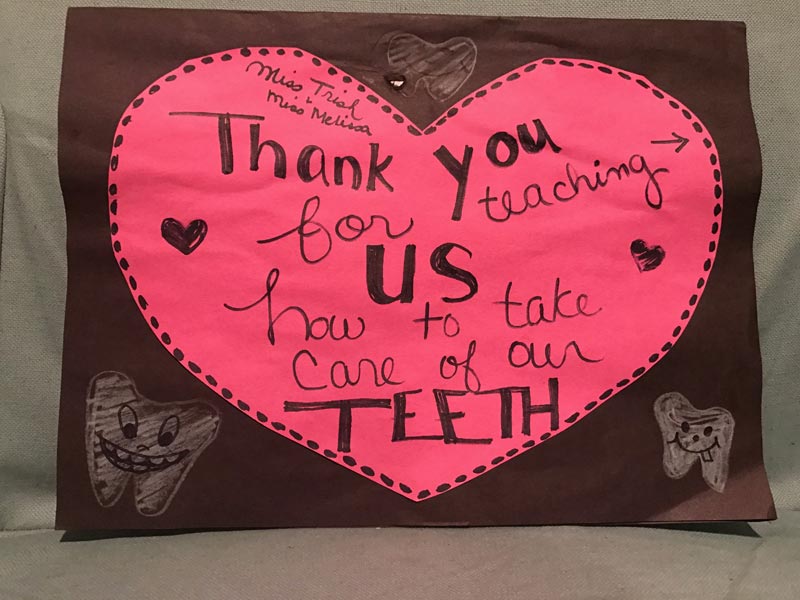 Miss Trish
&
Miss Melissa
Thank you
for teaching
us
how to take
care of our
TEETH